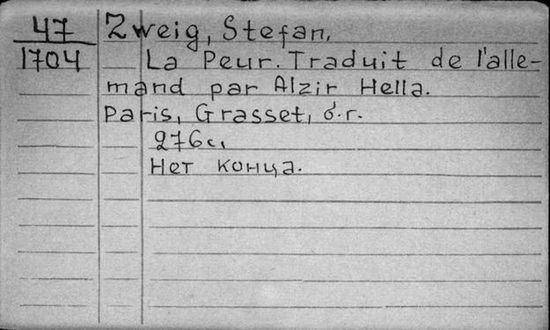 47
1704
Zweig, Stefan,
La Peur. Traduit de l'alle-
mand par Alzir Hella.
Paris, Grasset, б.г.
276с.
Нет конца.